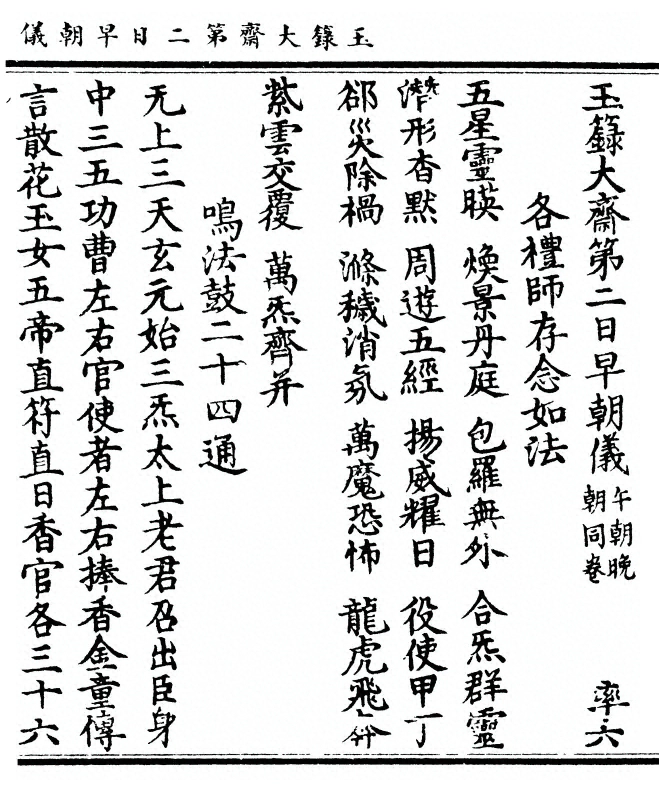 玉籙大齋第二日早朝儀
玉籙大齋第二日早朝儀 午朝晚朝同卷 率六
各禮師存念如法
五星靈暎 煥景丹庭 包羅無外 合炁群靈
潛形杳默 周遊五經 揚威耀日 役使甲丁
郤災除禍 滌穢消氛 萬魔恐怖 龍虎飛奔
紫雲交覆 萬炁齊并
鳴法鼓二十四通
无上三天玄元始三炁太上老君召出臣身
中三五功曹左右官使者左右捧香金童傳
言散花玉女五帝直符直日香官各三十六